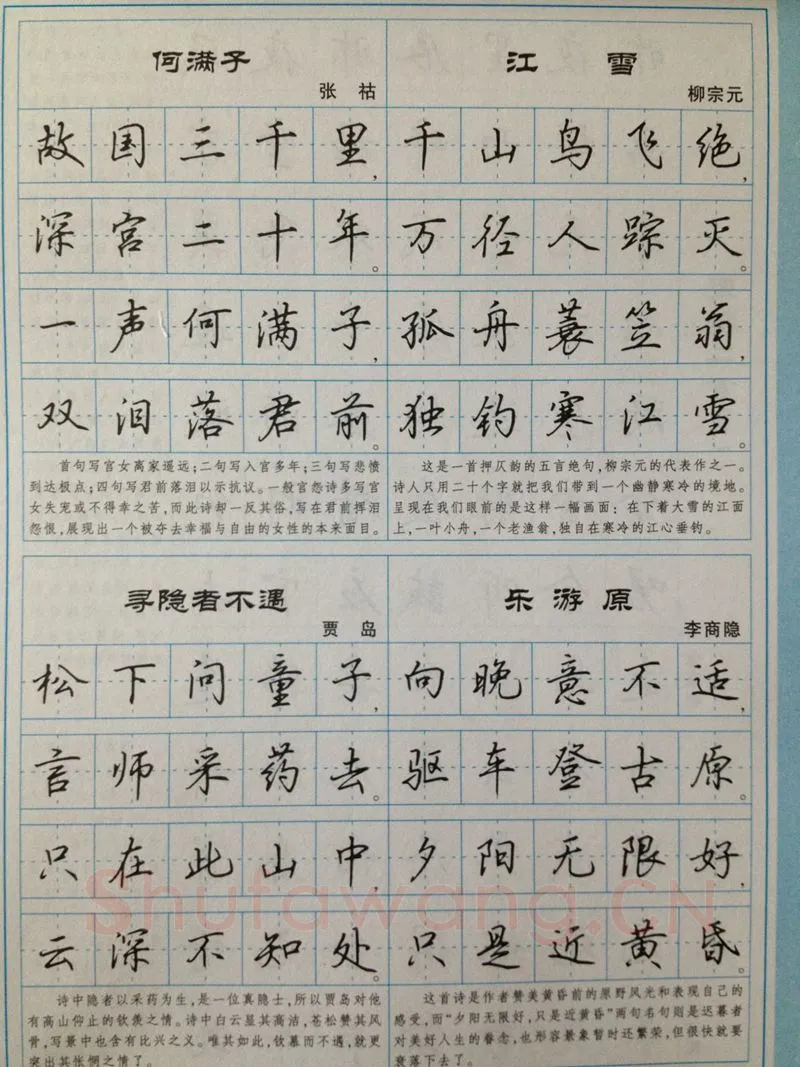 何满子
张 祜
故国三千里,
深宫二十年。
一声何满子,
双泪落君前。
首句写宫女离家遥远;二句写入宫多年;三句写悲愤
到达极点;四句写君前落泪以示抗议。一般宫怨诗多写宫
女失宠或不得幸之苦,而此诗却一反其俗,写在君前挥泪
怨恨,展现出一个被夺去幸福与自由的女性的本来面目。
江 雪
柳宗元
千山鸟飞绝,
万径人踪灭。
孤舟蓑笠翁,
独钓寒江雪。
这是一首押仄韵的五言绝句,柳宗元的代表作之一。
诗人只用二十个字就把我们带到一个幽静寒冷的境地。
呈现在我们眼前的是这样一幅画面:在下着大雪的江面
上,一叶小舟,一个老渔翁,独自在寒冷的江心垂钓。
寻隐者不遇
贾 岛
松下问童子,
言师采药去。
只在此山中,
云深不知处。
诗中隐者以采药为生,是一位真隐士,所以贾岛对他
有高山仰止的钦羡之情。诗中白云显其高洁,苍松赞其风
骨,写景中也含有比兴之义。唯其如此,钦慕而不遇,就更
突出其怅惘之情了。
乐游原
李商隐
向晚意不适,
驱车登古原。
夕阳无限好,
只是近黄昏。
这首诗是作者赞美黄昏前的原野风光和表现自己的
感受,而“夕阳无限好,只是近黄昏”两句名句则是迟暮者
对美好人生的眷念,也形容景象暂时还繁荣,但很快就要
衰落下去了。
Shufawang.CN